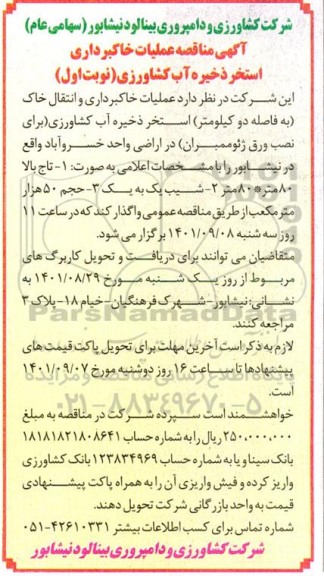 شرکت کشاورزی و دامپروری بینالود نیشابور (سهامی عام)
آگهی مناقصه عملیات خاکبرداری
استخر ذخیره آب کشاورزی (نوبت اول)
این شرکت در نظر دارد عملیات خاکبرداری و انتقال خاک
(به فاصله دو کیلومتر) استخر ذخیره آب کشاورزی(برای
نصب ورق ژئوممبران) در اراضی واحد خسروآباد واقع
در نیشابور را با مشخصات اعلامی به صورت: ۱- تاج بالا
۸۰متر*۸۰متر ۲-شیب یک به یک ۳-حجم ۵۰ هزار
متر مکعب از طریق مناقصه عمومی واگذار کند که در ساعت ۱۱
روز سه شنبه ۱۴۰۱/۰۹/۰۸ برگزار می شود.
متقاضیان می توانند برای دریافت و تحویل کاربرگ های
مربوط از روز یک شنبه مورخ ۱۴۰۱/۰۸/۲۹ به
نشانی: نیشابور-شهرک فرهنگیان-خیام ۱۸-پلاک ۳
مراجعه کنند.
لازم به ذکر است آخرین مهلت برای تحویل پاکت قیمت های
پیشنهادها تا ساعت ۱۶ روز دوشنبه مورخ ۱۴۰۱/۰۹/۰۷
است.
خواهشمند است سپرده شرکت در مناقصه به مبلغ
۲۵۰,۰۰۰,۰۰۰ ریال را به شماره حساب ۱۸۱۸۱۸۲۱۸۰۸۶۴۱
بانک سینا و یا به شماره حساب ۱۲۳۸۳۴۹۶۹ بانک کشاورزی
واریز کرده و فیش واریزی آن را به همراه پاکت پیشنهادی
قیمت به واحد بازرگانی شرکت تحویل دهند.
شماره تماس برای کسب اطلاعات بیشتر ۴۲۶۱۰۳۳۱-۰۵۱
شرکت کشاورزی و دامپروری بینالود نیشابور
ParsNamadData
۰۲۱-۸۸۳۴۹۶۷۰-۵